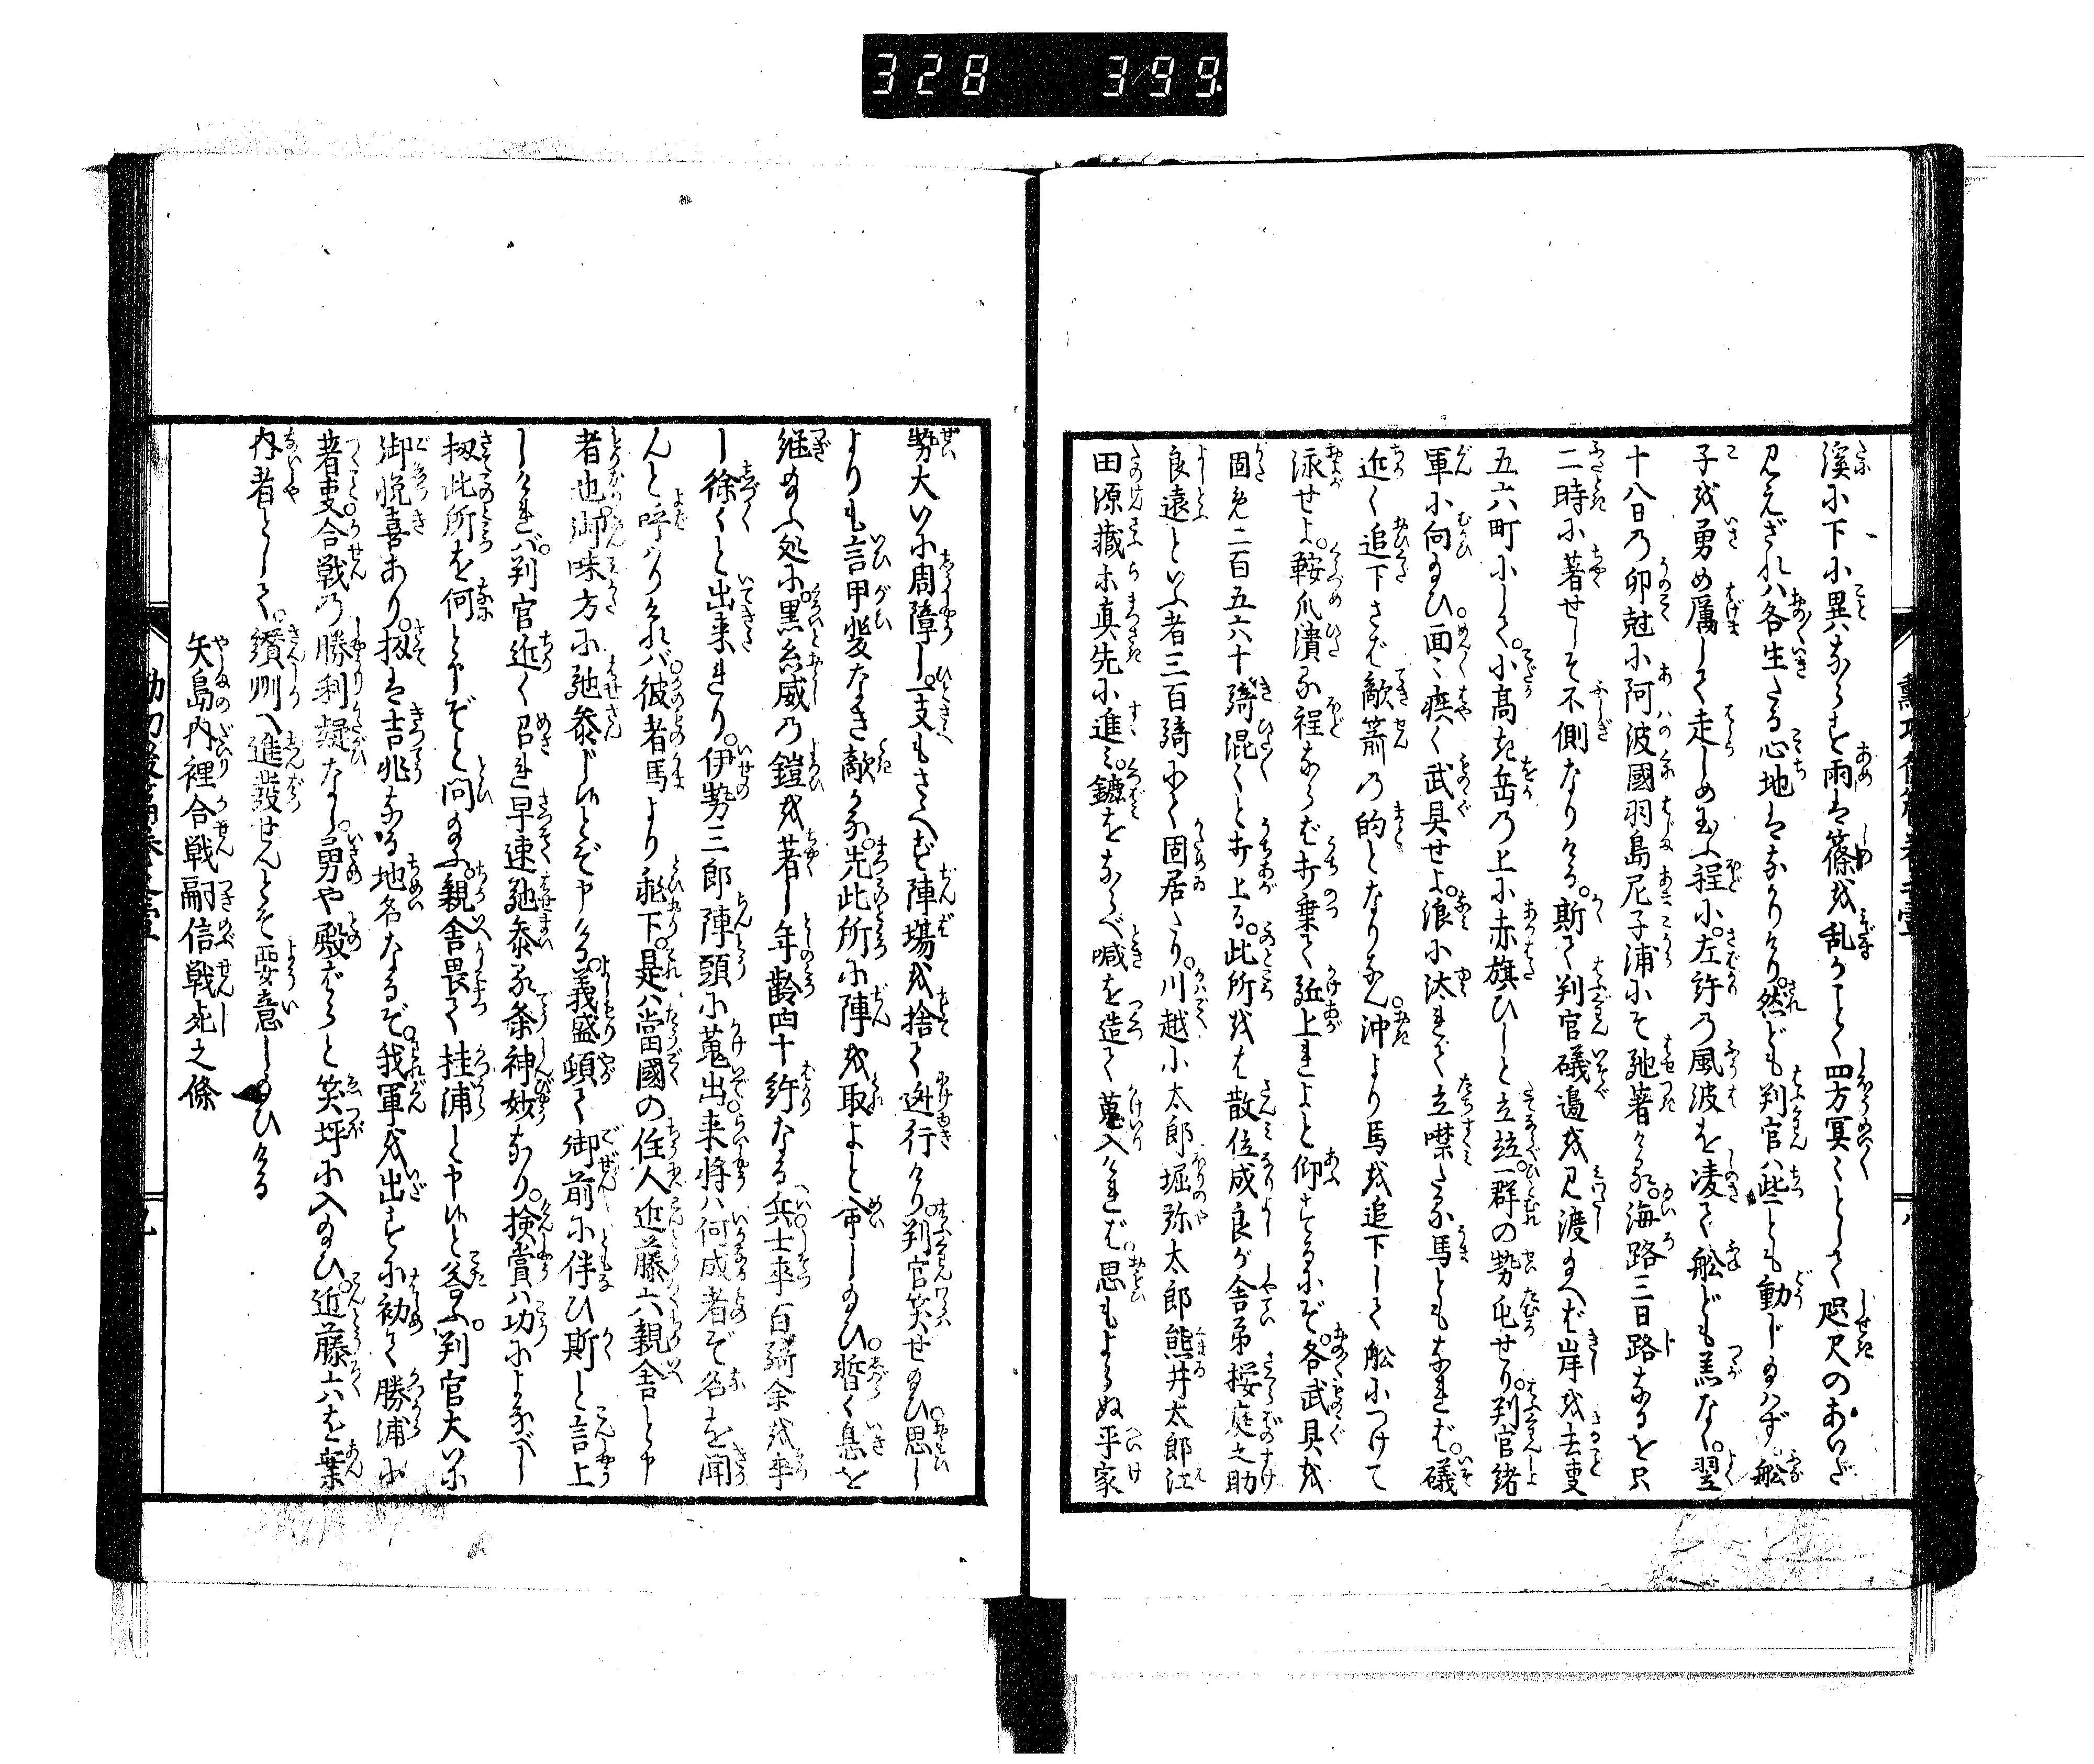 328 399
渓に下に異ならず雨は篠を乱がごとく四方冥々として咫尺のあいだ
見えざれバ各生たる心地はなかりけり。然ども判官ハ些とも動じ給ハず舩
子を勇め属して走しめ玉ふ程に。左許の風波を凌で舩ども恙なく。翌
十八日の卯尅に阿波國羽島尼子浦にそ馳著ける。海路三日路なるを只
二時に著せしそ不側なりける。斯て判官礒邉を見渡し給へば岸を去事
五六町にして。小高き岳の上に赤旗ひしと立並。一群の勢屯せり。判官諸
軍に向給ひ。面々疾く武具せよ。浪に汰れて立噤たる馬ともなれば。礒
近く追下さば敵箭の的となりなん。沖より馬を追下して舩につけて
泳せよ。鞍爪潰る程ならば打乗て延上れよと仰するにぞ。各武具を
固め二百五六十騎混々と打上る。此所をは散位成良が舎弟桜庭之助
良遠といふ者三百騎にて固居たり。川越小太郎堀弥太郎熊井太郎江
田源蔵ホ真先に進ミ。鑣をならべ喊を造て蒐入ければ。思もよらぬ平家
勢大いに周障し。一支もさゝへず陣場を捨て迯行けり。判官笑せ給ひ思し
よりも言甲斐なき敵かな。先此所に陣を取よと命し給ひ。暫く息を
継給ふ処に。黒糸威の鎧を著し年齢四十許なる兵士率百騎余を率
し徐々と出来れり。伊勢三郎陣頭に蒐出。来将ハ何成者ぞ名を聞
んと呼ハりけれバ。彼者馬より飛下。是ハ當國の住人近藤六親舎と申
者也。御味方に馳参じ候とぞ申ける。義盛頓て御前に伴ひ斯と言上
しけれバ。判官近く召れ早速馳参る条神妙なり。検賞ハ功によるべし
扨此所を何と申ぞと問給ふ。親舎畏て挂浦と申候と答ふ。判官大いに
御悦喜あり。扨は吉兆なる地名なるぞ。我軍を出すに初て勝浦に
著事合戦の勝利疑なし。勇や殿ばらと笑坪に入給ひ。近藤六を案
内者として。讃州へ進發せんとそ要意し給ひける
矢島内裡合戦嗣信戦死之條